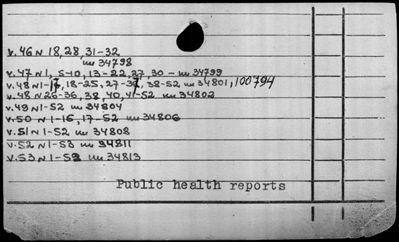 v.46 N 18,28,31-32
им 34798
v.47 N 1, 5-10, 13-22, 27, 30 - им 34799
v.48 N 1-17, 18-25, 27-37, 38-52 им 34801, 100794
v.48 N 26-36, 38, 40, 41-52 им 34802
v.49 N 1-52 им 34804
v.50 N 1-15, 17-52 им 34806
v.51 N 1-52 им 34808
v.52 N 1-53 им 34811
v.53 N 1-52 им 34813
Public health reports